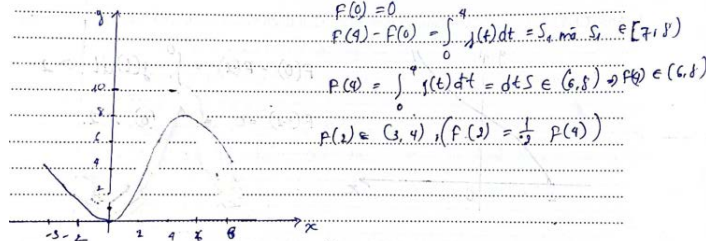 F(0) = 0
F(4) - F(0) = ∫₀⁴ f(t)dt = S₁ mà S₁ ∈ [7, 8)
F(4) = ∫₀⁴ f(t)dt = dt S ∈ (6,8) ⇒ F(4) ∈ (6,8)
F(2) ∈ (3, 4), (F(2) = 1/2 F(4))
y
10
8
6
4
2
-3 -2 2 4 6 8 x